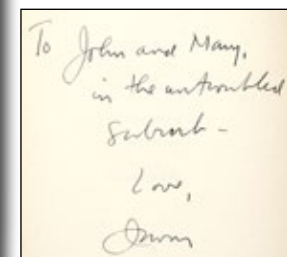 To John and Mary,
in the untroubled
suburb –
Love,
Irwin